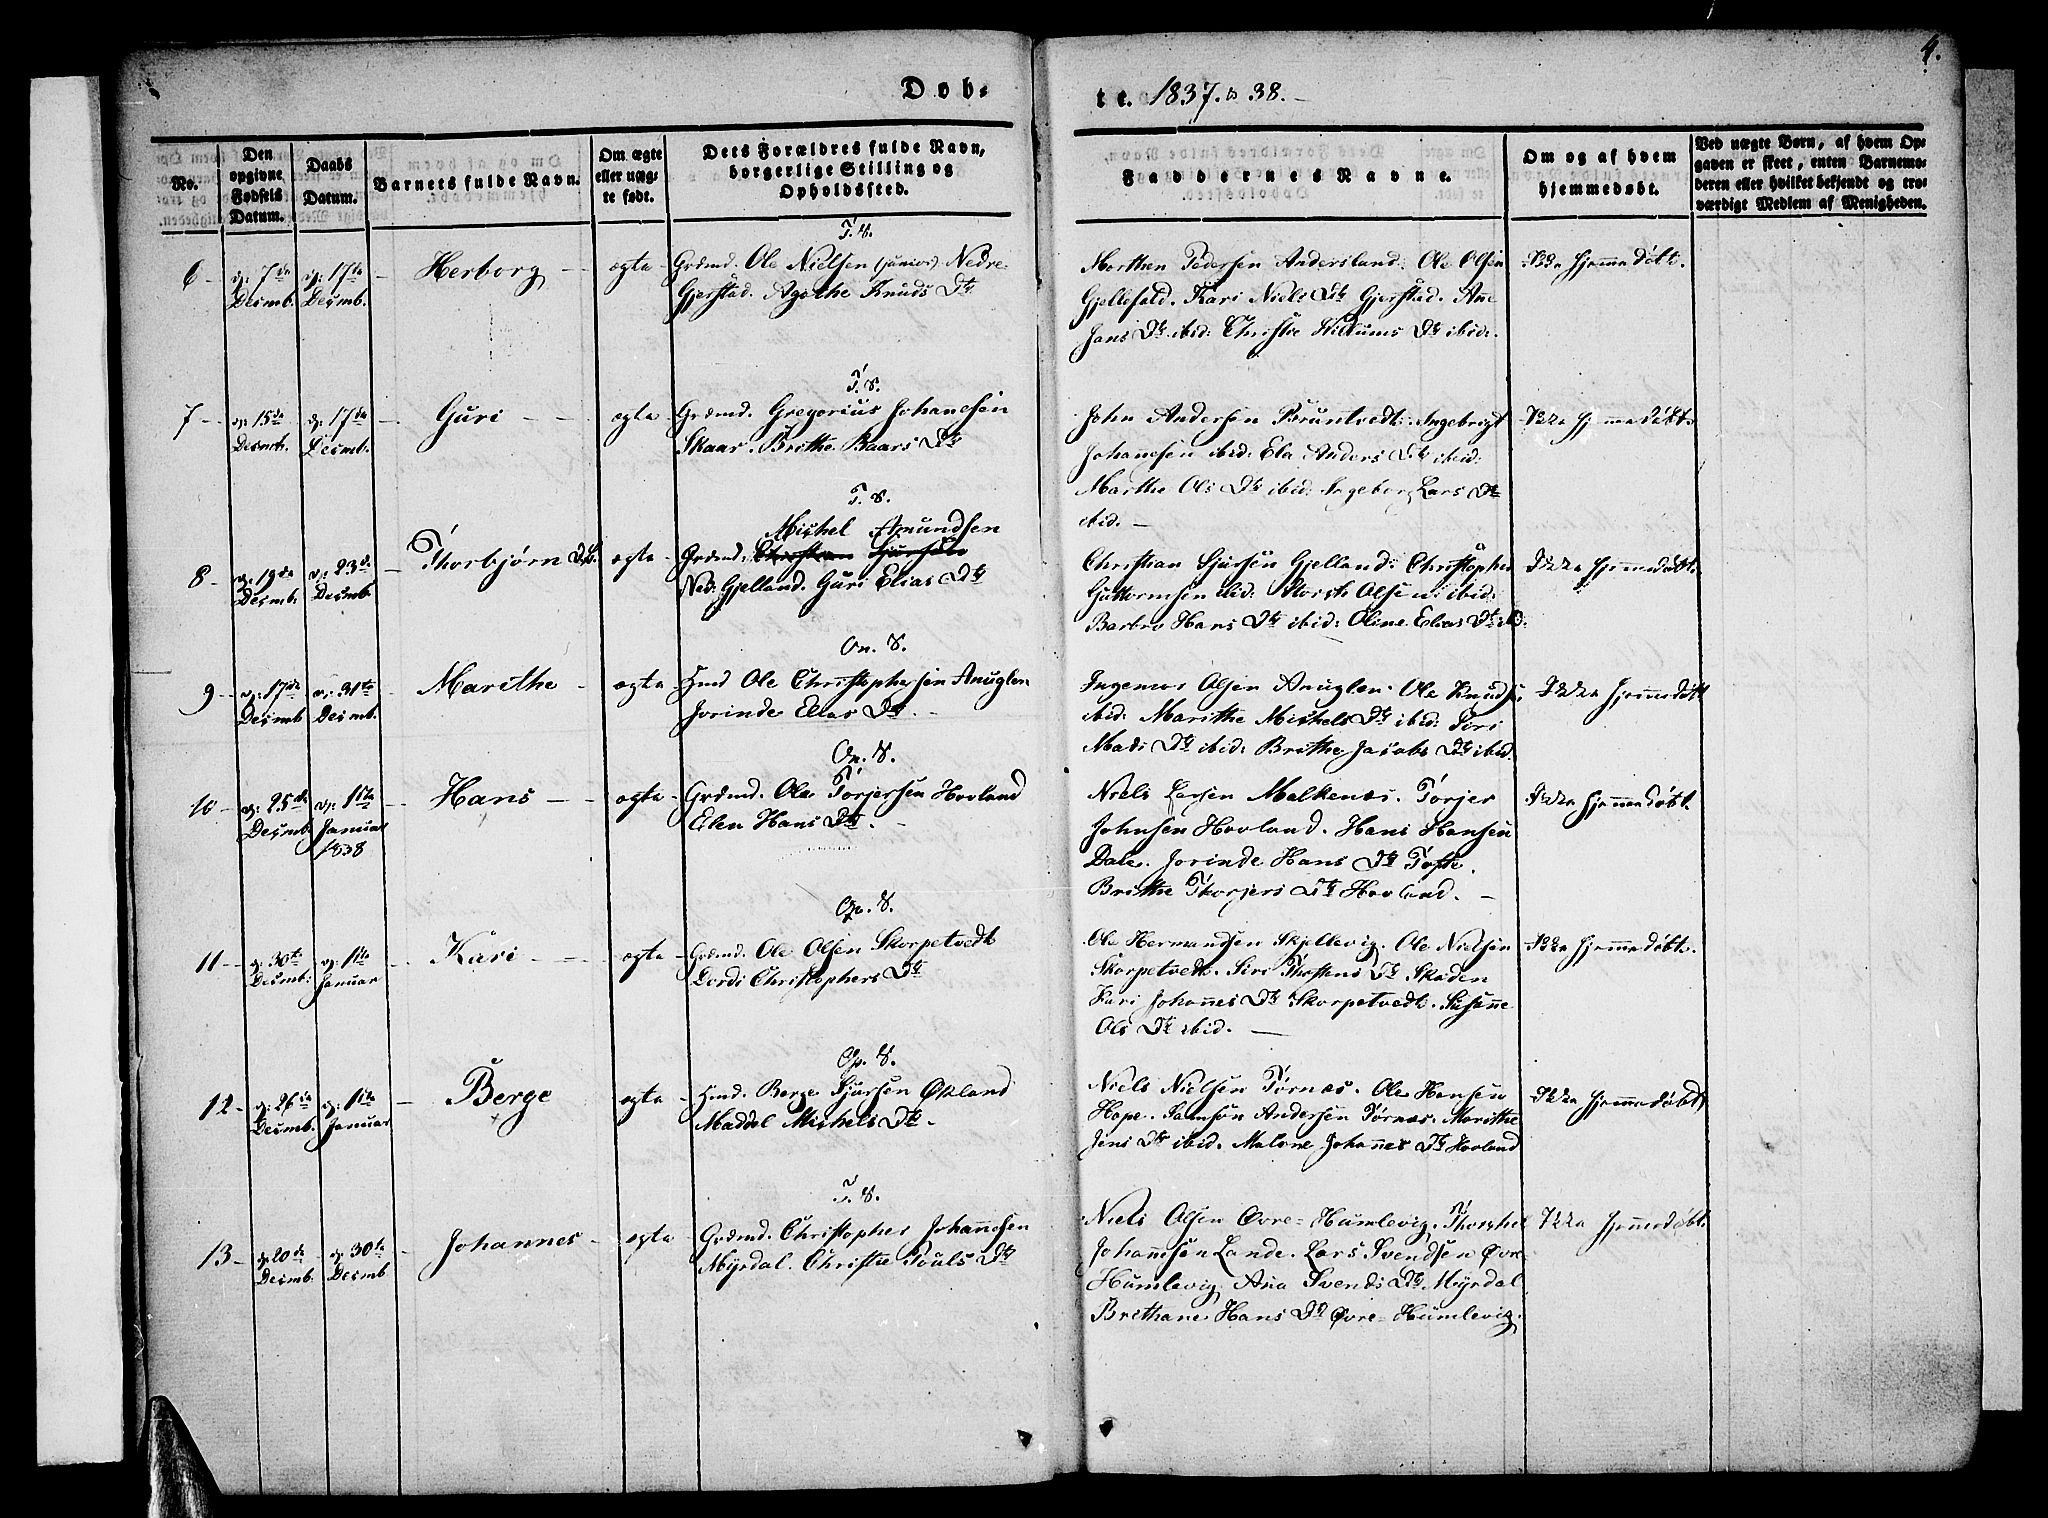 4.
Døb-
te. 1837. & 38.
No.
Den opgivne Fødsels Datum.
Daabs Datum.
Barnets fulde Navn.
Om ægte eller uægte født.
Dets Forældres fulde Navn, borgerlige Stilling og Opholdssted.
Faddernes Navne.
Om og af hvem hjemmedøbt.
Ved uægte Børn, af hvem Opgaven er skeet, enten Barnemoderen eller hvilket bekjendt og troværdigt Medlem af Menigheden.
T. S.
6 - d: 7de Desmb. d: 17de Desmb. - Herborg - ægte - Grdmd. Ole Nielsen (junior) Nedre Gjerstad. Agathe Knuds Dtr
Morthen Pedersen Andersland. Ole Olsen
Gjellefald. Kari Niels Dtr Gjerstad. Ane
Jans Dtr ibid: Christie Willums Dtr ibid:
Ikke hjemmedöbt.
T. S.
7 - d: 15de Desmb. d: 17de Desmb. - Guri - ægte - Grdmd. Gregorius Johanesen
Skaar. Brithe Baars Dtr
John Andersen Bruntvedt. Ingebrigt
Johanesen ibid: Ela Anders Dtr ibid:
Marthe Ols Dtr ibid: Ingeborg Lars Dtr
ibid. -
Ikke hjemmedöbt.
T. S.
Michel Amundsen
8 - d: 19de Desmb. d: 23de Desmb. - Thorbjørn - ægte - Grdmd: Christian Sjursen
Ned: Gjelland. Guri Elias Dtr
Christian Sjursen Gjelland: Christopher
Guttormsen ibid: Olsen ibid:
Barbro Hans Dtr ibid: Oline Elias Dtr ibid.
Ikke hjemmedöbt.
On. S.
9 - d: 17de Desmb d: 31te Desmb. - Marithe - ægte - Hmd Ole Christophersen Anuglen
Jorinde Elias Dtr. -
Ingemor Olsen Anuglen. Ole Knuds:
ibid: Marithe Michels Dtr ibid: Siri
Mads Dtr ibid: Brithe Jacobs Dtr ibid.
Ikke hjemmedöbt
On. S.
10 - d: 25de Desmb. d: 1ste Januar 1838 - Hans - ægte - Grdmd. Ole Torjersen Hovland
Elen Hans Dtr. -
Niels Larsen Malkenæs. Torjer
Johnsen Hovland. Hans Hansen
Dale. Jorinde Hans Dtr Tofte.
Brithe Thorjers Dtr Hovland. -
Ikke hjemmedöbt.
Op. S.
11 - d: 30te Desmb. d: 1ste Januar - Kari - ægte - Grdmd. Ole Olsen Skorpetvedt
Dordi Christophers Dtr
Ole Hermandsen Skjellevig. Ole Nielsen
Skorpetvedt. Siri Thostens Dtr Skaden
Kari Johannes Dtr Skorpetvedt. Susanne
Ols Dtr ibid. -
Ikke hjemmedöbt.
Op. S.
12 - d: 26de Desmb. d: 1ste Januar - Berge - ægte - Hmd. Berge Sjursen Økland
Maddel Michels Dtr.
Niels Nielsen Tørnæs. Ole Hansen
Hope. Samson Andersen Tørnæs. Marithe
Jens Dtr ibid. Malene Johannes Dtr Hovland
Ikke hjemmedöbt
T. S.
13 - d: 20de Desmb. d: 30te Desmb - Johannes - ægte - Grdmd. Christopher Johannesen
Myrdal. Christie Pouls Dtr
Niels Olsen Øvre-Humlevig. Thorstei
Johannesen Lande. Lars Svendsen Øvre-
Humlevig. Ana Svends Dtr Myrdal
Brithane Hans Dtr Øvre-Humlevig.
Ikke hjemmedöbt.